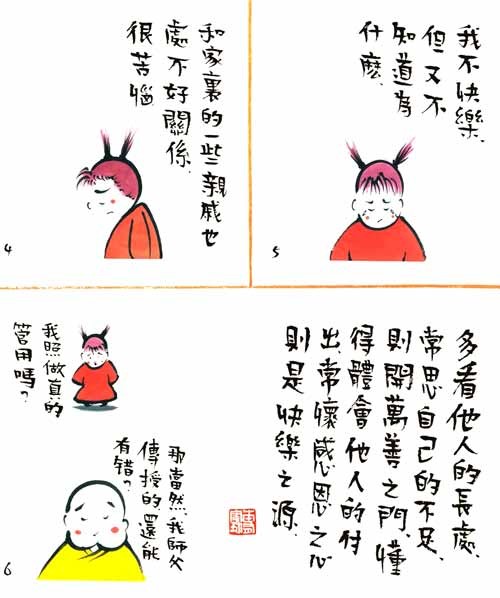 和家裏的一些親戚也
處不好關係、
很苦惱
4
我不快樂、
但又不
知道為
什麼、
5
我照做真的
管用嗎？
那當然、我師父
傳授的、還能
有錯？
6
多看他人的長處、
常思自己的不足、
則開萬善之門、懂
得體會他人的付
出、常懷感恩之心
則是快樂之源、